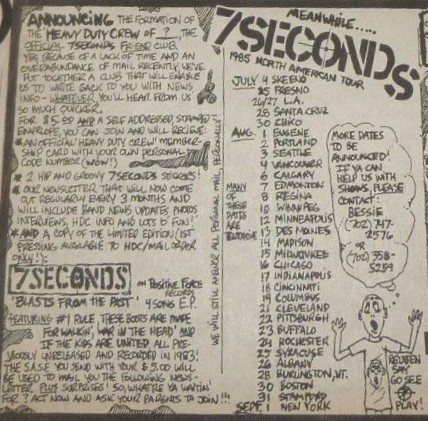 ANNOUNCING THE FORMATION OF
THE HEAVY DUTY CREW OF ?, THE
OFFICIAL 7SECONDS FRIEND CLUB.
YES BECAUSE OF A LACK OF TIME AND AN
OVERABUNDANCE OF MAIL RECENTLY, WE'VE
PUT TOGETHER A CLUB THAT WILL ENABLE
US TO WRITE BACK TO YOU WITH NEWS
INFO - WHATEVER YOU'LL HEAR FROM US
SO MUCH QUICKER!
FOR $5.00 AND A SELF ADDRESSED STAMPED
ENVELOPE, YOU CAN JOIN AND WILL RECIEVE:
* AN OFFICIAL HEAVY DUTY CREW MEMBER-
SHIP CARD WITH YOUR OWN PERSONAL
CODE NUMBER (WOW!)
* 2 HIP AND GROOVY 7SECONDS STICKERS!
* OUR NEWSLETTER THAT WILL NOW COME
OUT REGULARLY EVERY 3 MONTHS AND
WILL INCLUDE BAND NEWS, UPDATES, PHOTOS
INTERVIEWS, HDC INFO AND LOTS O' FUN!
* AND A COPY OF THE LIMITED EDITION (1ST
PRESSING AVAILABLE TO HDC/MAIL ORDER
ONLY!):
7SECONDS ON POSITIVE FORCE
RECORDS
'BLASTS FROM THE PAST' 4 SONG E.P.
FEATURING #1 RULE, THESE BOOTS ARE MADE
FOR WALKIN', WAR IN THE HEAD' AND IF
THE KIDS ARE UNITED ALL PRE-
VIOUSLY UNRELEASED AND RECORDED IN 1983!
THE S.A.S.E YOU SEND WITH YOUR $5.00 WILL
BE USED TO MAIL YOU THE FOLLOWING NEWS-
LETTER PLUS SURPRISES! SO, WHAT'RE YA WAITIN'
FOR? ACT NOW AND ASK YOUR PARENTS TO JOIN!
WE WILL STILL ANSWER ALL PERSONAL MAIL PERSONALLY!
MEANWHILE.....
7SECONDS
1985 NORTH AMERICAN TOUR
JULY 4 SKEENO
25 FRESNO
26/27 L.A.
28 SANTA CRUZ
30 CHICO
AUG. 1 EUGENE
2 PORTLAND
3 SEATTLE
4 VANCOUVER
6 CALGARY
7 EDMONTON
8 REGINA
10 WINNIPEG
12 MINNEAPOLIS
13 DES MOINES
14 MADISON
15 MILWAUKEE
16 CHICAGO
17 INDIANAPOLIS
18 CINCINNATI
19 COLUMBUS
21 CLEVELAND
22 PITTSBURGH
23 BUFFALO
24 ROCHESTER
27 SYRACUSE
26 ALBANY
28 BURLINGTON, VT.
30 BOSTON
31 STAMFORD
SEPT. 1 NEW YORK
MANY
OF
THESE
DATES
ARE
MORE DATES
TO BE
ANNOUNCED!
IF YA CAN
HELP US WITH
SHOWS, PLEASE
CONTACT:
BESSIE
(702) 747-
2576
OR
(702) 358-
5259
REUBEN
SAY
GO SEE
PLAY!